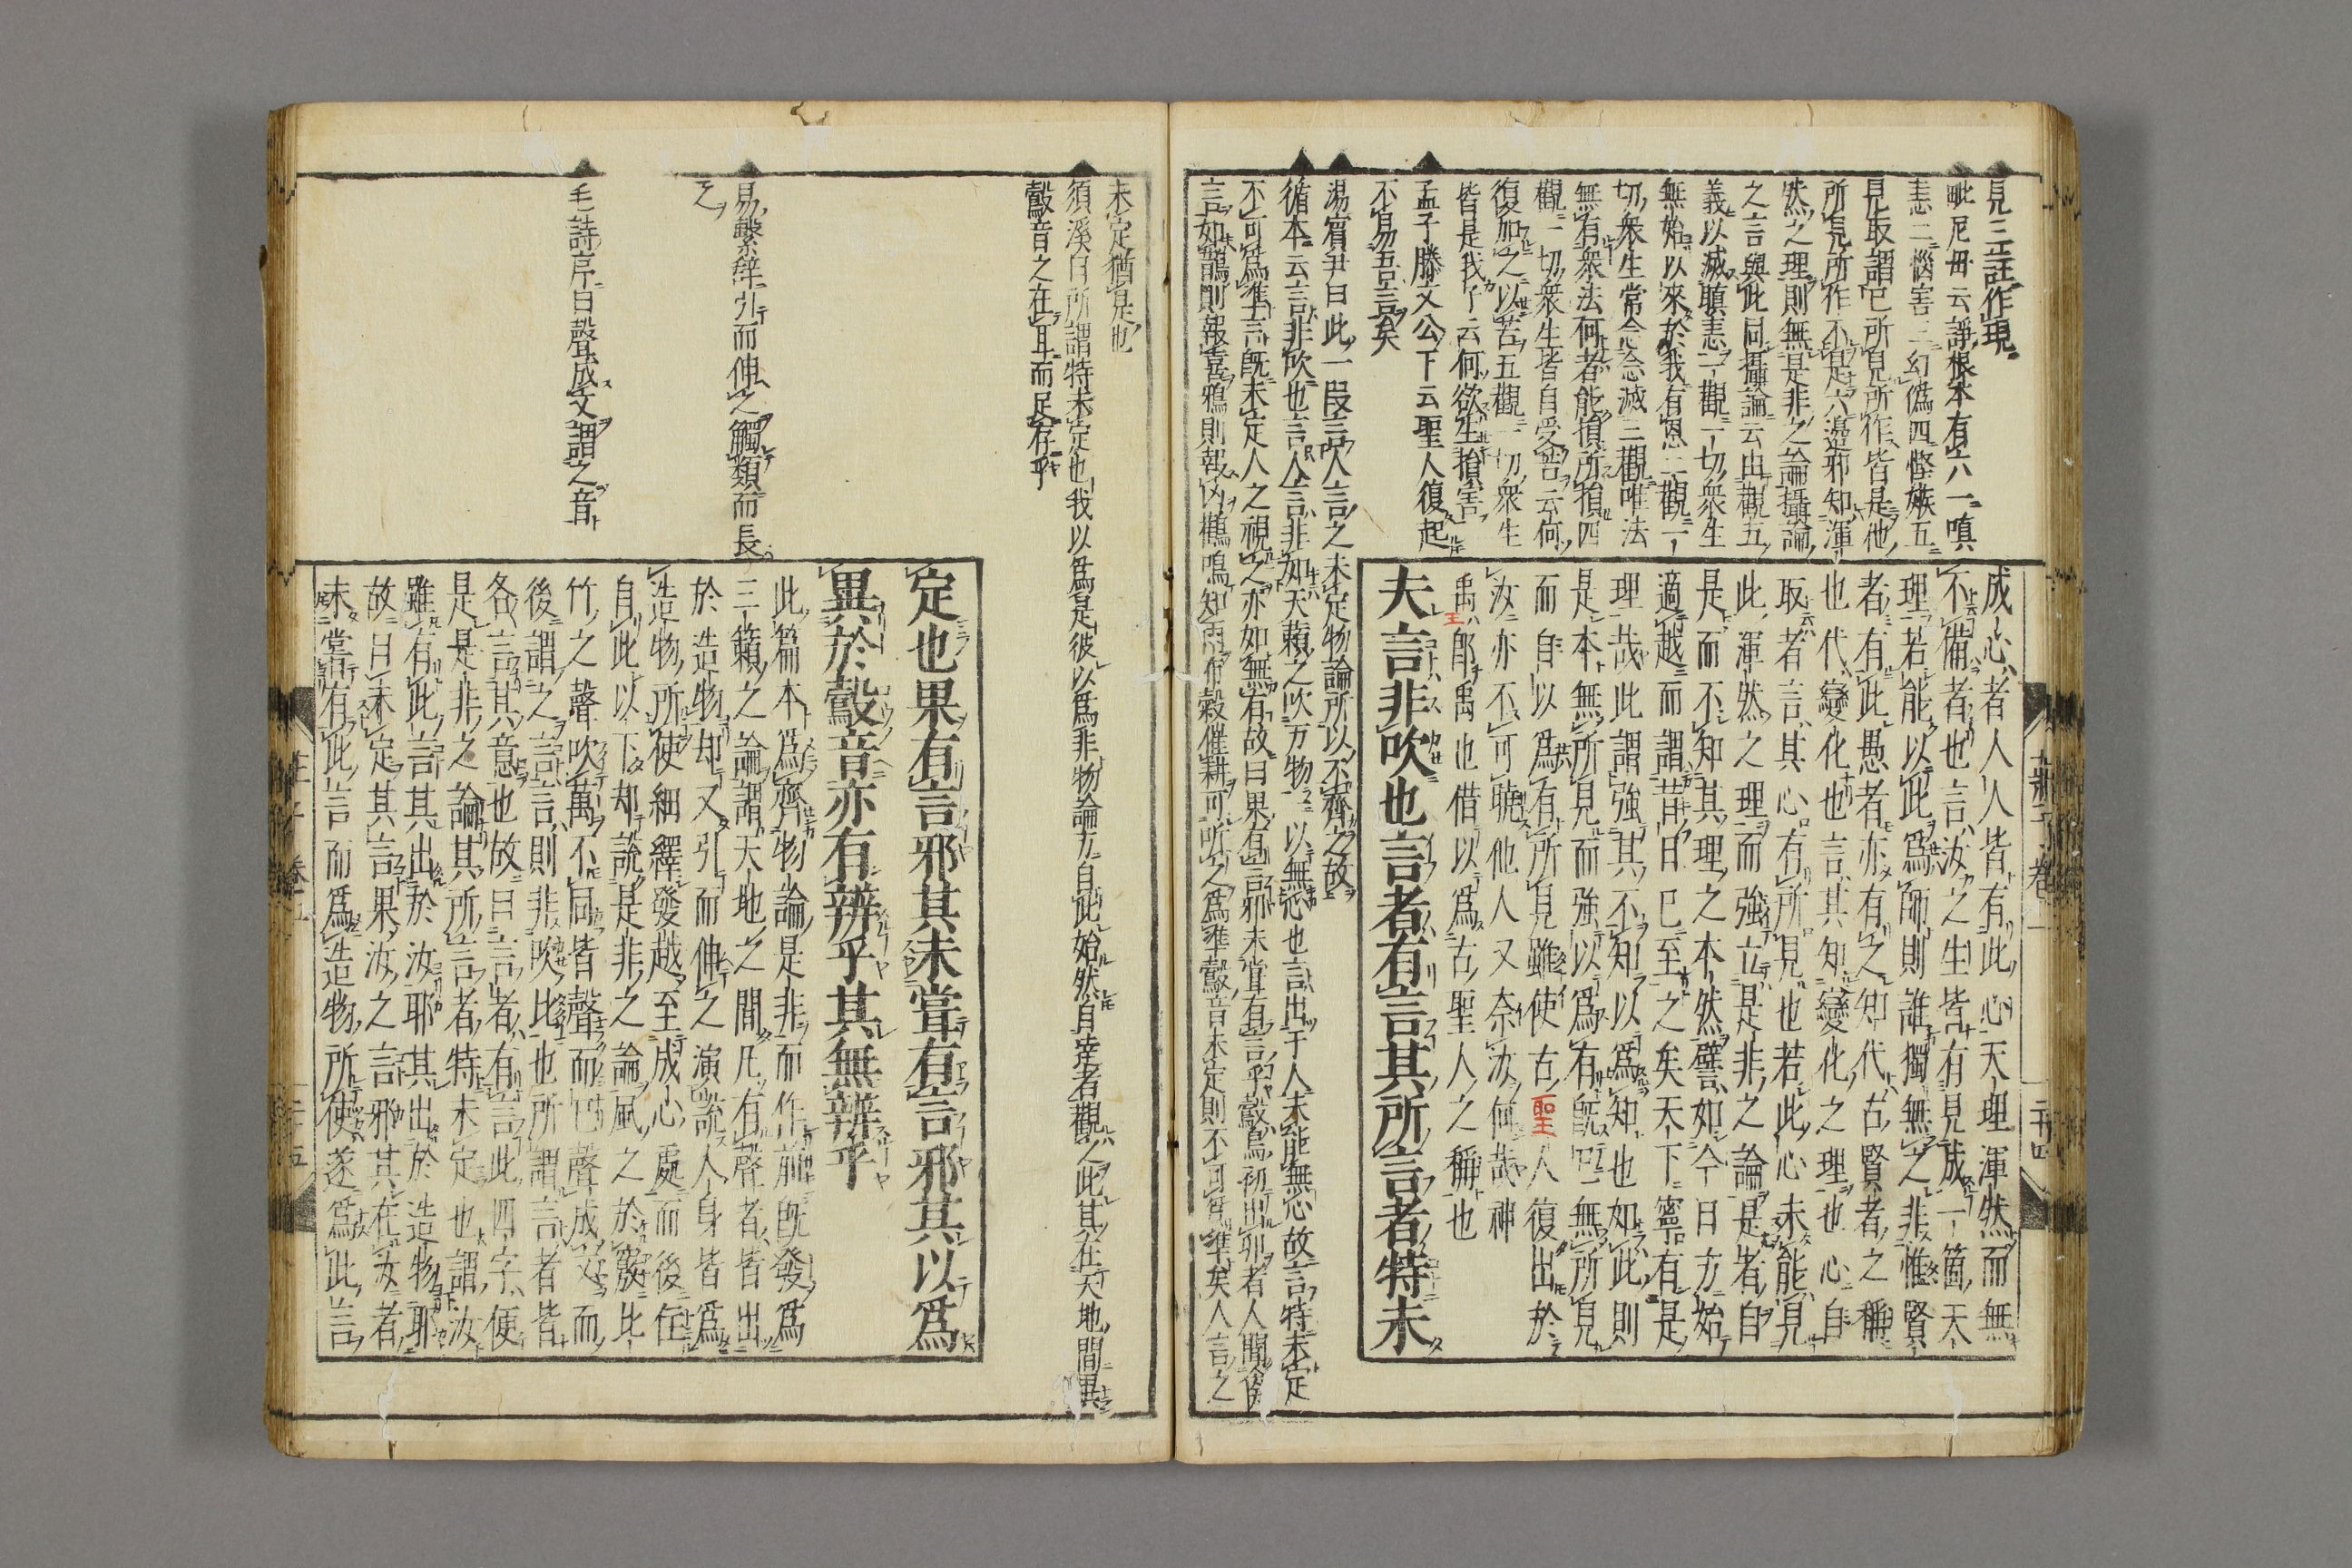 見三註作現
毗尼毋云諍根本有六一嗔
恚二惱害三幻僞四慳嫉五
見取謂己所見所作皆是他
所見所作不是六邊邪知渾
然之理則無是非之論攝論
之言與此同攝論云出觀五
義以滅瞋恚一觀一切衆生
無始以來於我有恩二觀一
切衆生常念念滅三觀唯法
無有衆法何者能損所損四
觀一切衆生皆自受苦云何
復加之以苦五觀一切衆生
皆是我子云何欲生損害
孟子滕文公下云聖人復起
不易吾言矣
成心者人人皆有此心天理渾然而無
不備者也言汝之生皆有見成一箇天
理若能以此爲師則誰獨無之非惟賢
者有此愚者亦有之知代古賢者之稱
也代變化也言其知變化之理也心自
取者言其心有所見也若此心未能見
此渾然之理而強立是非之論是者自
是而不知其理之本然譬如今日方始
適越而謂昔日已至之矣天下寧有是
理哉此謂強其不知以爲知也如此則
是本無所見而強以爲有既曰無所見
而自以爲有所見雖使古聖人復出於
汝亦不可曉他人又奈汝何哉神
禹王即禹也借以爲古聖人之稱也
夫言非吹也言者有言其所言者特未
湯賓尹曰此一段言人言之未定物論所以不齊之故
循本云言非吹也言人言非如天籟之吹万物以無心也言出于人未能無心故言特未定
不可爲準言既未定人之視之亦如無有故曰果有言邪未甞有言乎鷇鳥初出卵者人聞
言如鵲則報喜鴉則報凶鸛鳴知雨布穀催耕可听之爲準鷇音未定則不可爲準矣人言之
未定猶是也
須溪曰所謂特未定也我以爲是彼以爲非物論方自此始然自達者觀之此其在天地間異
鷇音之在耳而足存乎
定也果有言邪其未甞有言邪其以爲
異於鷇音亦有辨乎其無辨乎
易繫辭引而伸之觸類而長
之
毛詩序曰聲成文謂之音
此篇本爲齊物論是非而作前既發爲
三籟之論謂天地之間凡有聲者皆出
於造物却又引而伸之演說人身皆爲
造物所使細繹發越至成心處而後住
自此以下却說是非之論風之於竅比
竹之聲吹萬不同皆聲而已聲成文而
後謂之言言則非吹比也所謂言者皆
各言其意也故曰言者有言此四字便
是是非之論其所言者特未定也謂汝
雖有此言其出於汝耶其出於造物耶
故曰未定其言果汝之言邪其在汝者
未甞有此言而爲造物所使遂爲此言